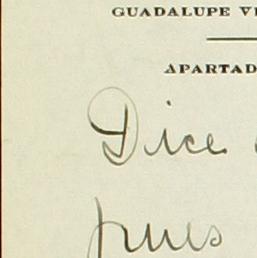 GUADALUPE
APARTAD
Dice
pues